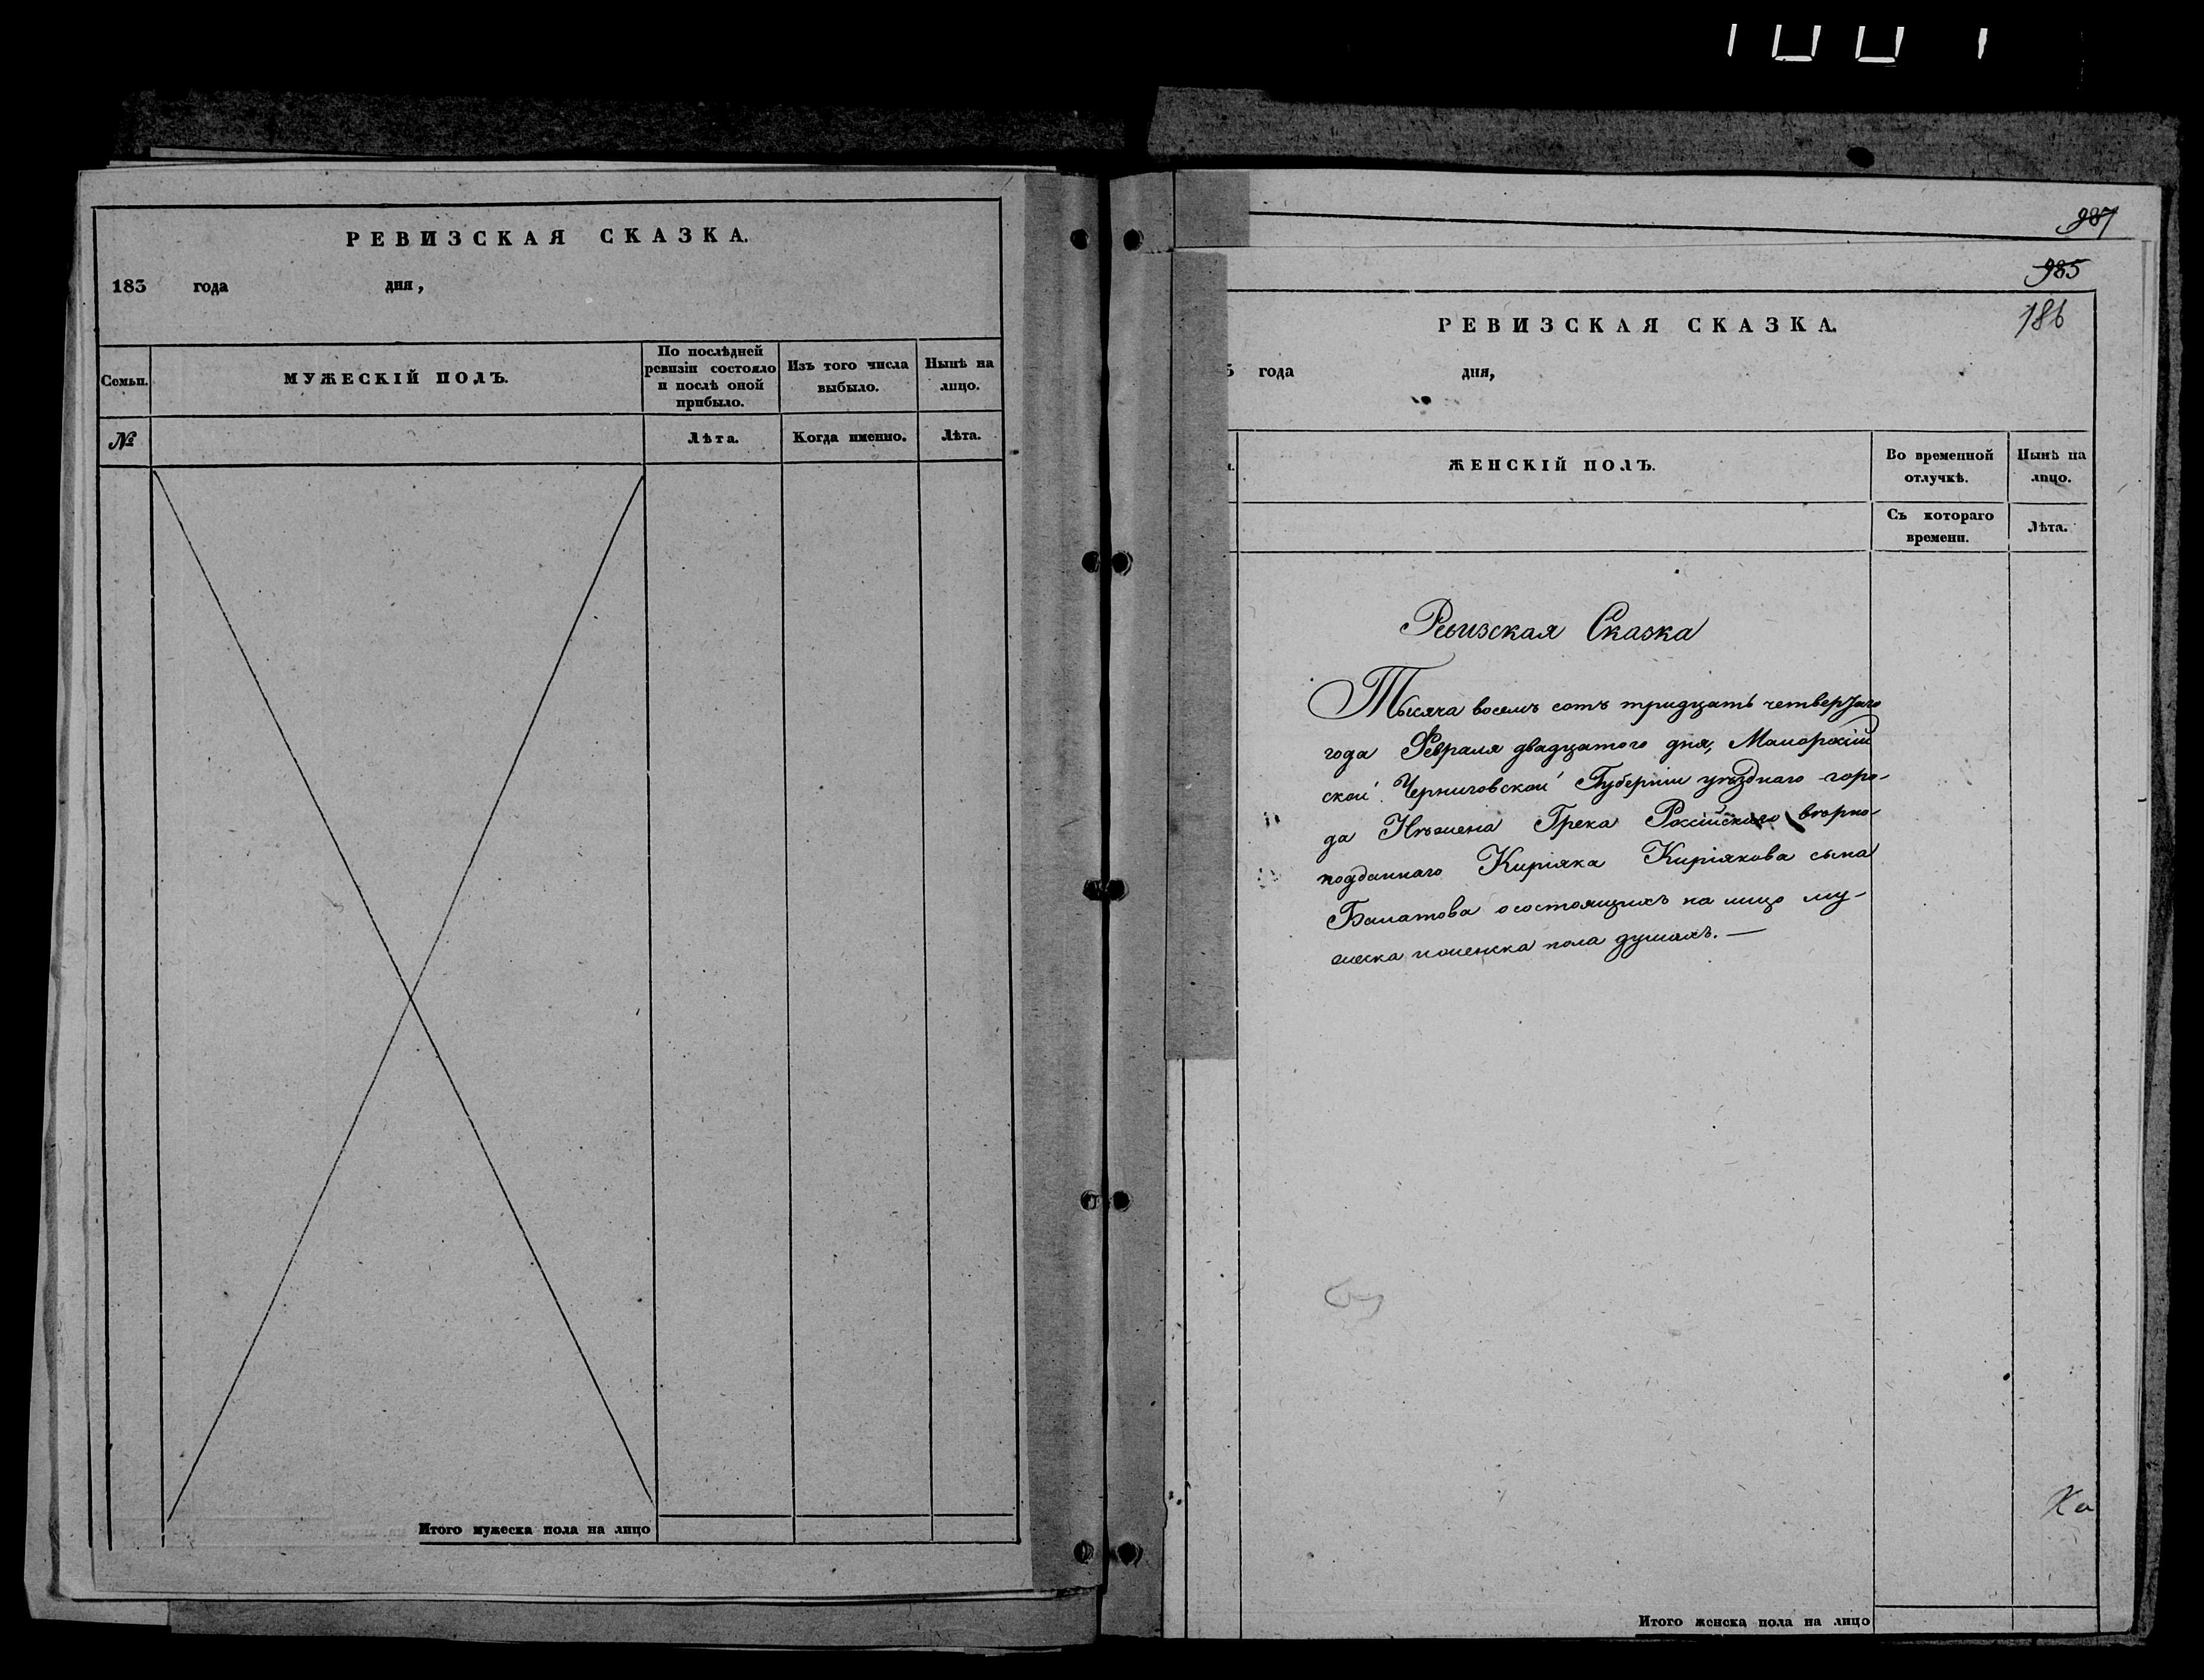 РЕВИЗСКАЯ СКАЗКА.
183 года дня,
Семьи.
МУЖЕСКІЙ ПОЛЪ.
По послѣдней
ревизіи состояло
и послѣ оной
прибыло.
Изъ того числа
выбыло.
Нынѣ на
лицо.
№
Лѣта.
Когда именно.
Лѣта.
Итого мужеска пола на лицо
987
985
186
РЕВИЗСКАЯ СКАЗКА.
года дня,
ЖЕНСКІЙ ПОЛЪ.
Во временной
отлучкѣ.
Нынѣ на
лицо.
Съ котораго
времени.
Лѣта.
Ревизская Сказка
Тысяча восемъ сотъ тридцать четвертаго
года Февраля двадцатого дня, Малоросій
ской Черниговской Губерніи уѣзднаго горо-
да Нѣжина Грека Російскаго вѣрно-
подданнаго Киріяка Киріякова сына
Балатова о состоящихъ на лицо му-
жеска и женска пола душахъ. —
Ка
Итого женска пола на лицо